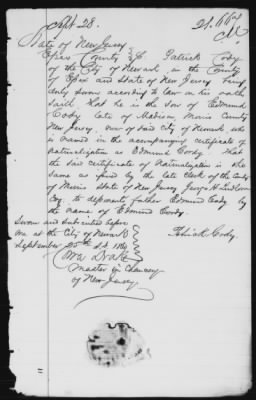 Sept. 28.
21.667
State of New Jersey
Essex County SS. Patrick Cody
of the City of Newark, in the County
of Essex and State of New Jersey being
duly sworn according to law on his oath
saith that he is the son of Edmund
Cody late of Madison, Morris County
New Jersey, now of said City of Newark who
is named in the accompanying certificate of
naturalization as Edmund Cordy. That
the said certificate of Naturalization is the
same as issued by the late clerk of the County
of Morris State of New Jersey George H. Ludlow
Esq. to deponents father Edmund Cody by
the name of Edmund Cordy.
Sworn and subscribed before
me at the City of Newark
September 25th A.D. 18
Patrick Cody.
Master in Chancery
of New Jersey.